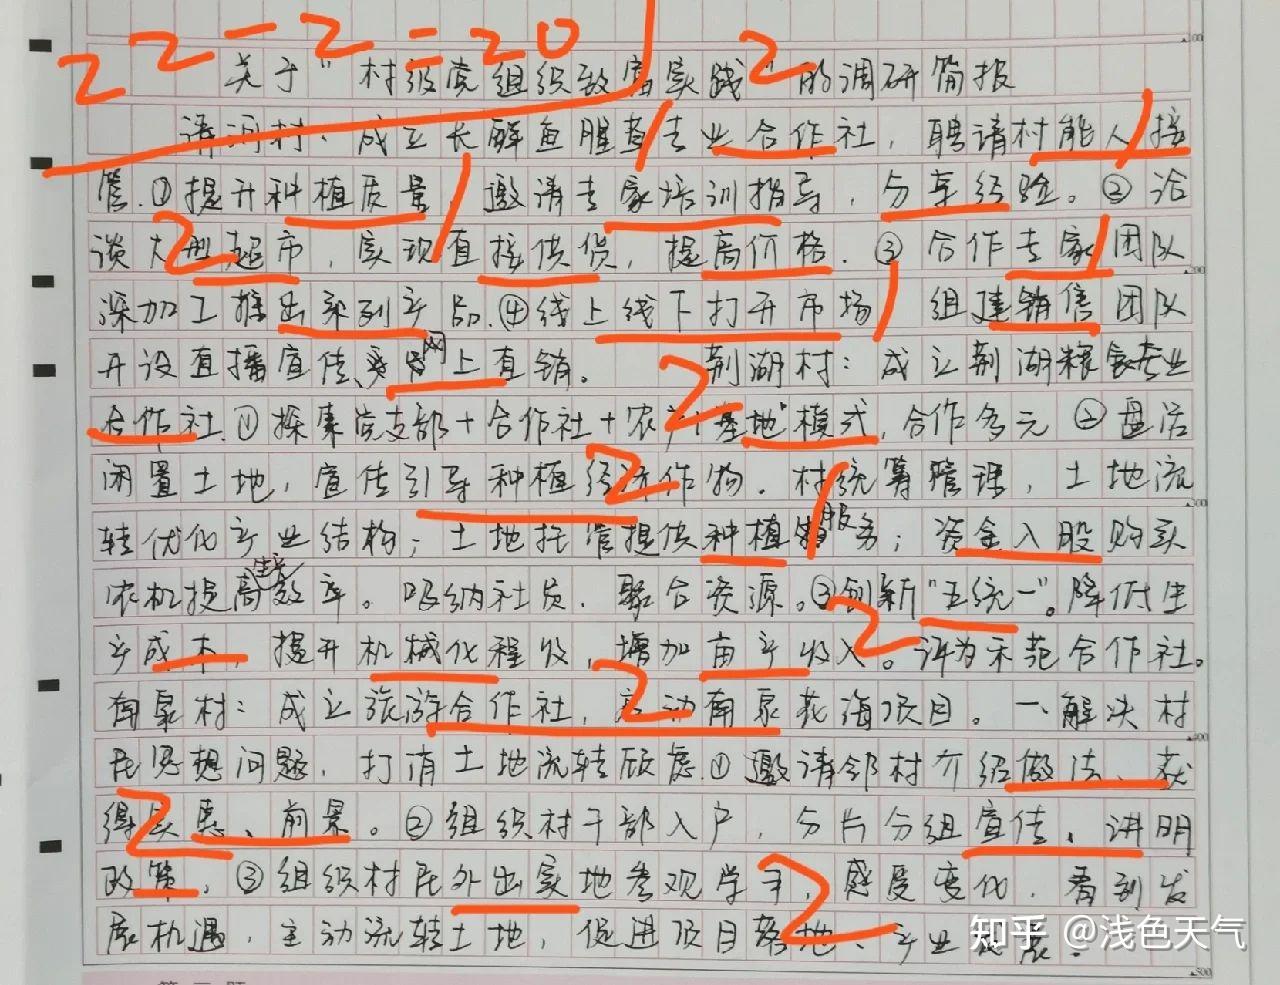 22-2=20
关于"村级党组织致富实践"的调研简报
清河村：成立长鲜鱼腥草专业合作社，聘请村能人接
管.①提升种植质量，邀请专家培训指导，分享经验。②洽
谈大型超市，实现直接供货，提高价格.③合作专家团队
深加工推出系列产品.④线上线下打开市场，组建销售团队
开设直播宣传、网上直销。 荆湖村：成立荆湖粮食专业
合作社.①探索党支部+合作社+农户+基地"模式，合作多元②盘活
闲置土地，宣传引导种植经济作物.村统筹管理，土地流
转优化产业结构；土地托管提供种植服务；资金入股购买
农机提高生产效率。吸纳社员.聚合资源。③创新"五统一"。降低生
产成本，提升机械化程度，增加亩产收入。评为示范合作社。
南泉村：成立旅游合作社，启动南泉花海项目。一、解决村
民思想问题，打消土地流转顾虑.①邀请邻村介绍做法、获
得实惠、前景。②组织村干部入户，分片分组宣传、讲明
政策，③组织村民外出实地参观学习，感受变化.看到发
展机遇，主动流转土地，促进项目落地、产业发展.
2
2
2
2
2
2
2
2
100
200
300
400
500
知乎 @浅色天气